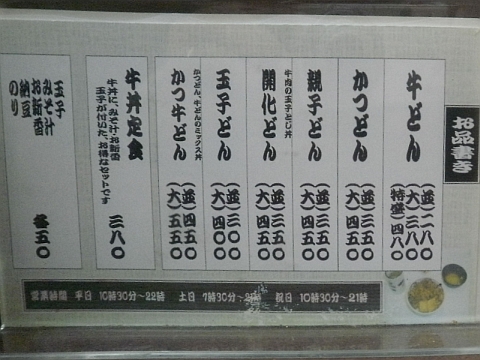 お品書き
牛どん
(並)二八〇
(大)三八〇
(特盛)四八〇
かつどん
(並)三五〇
(大)四五〇
親子どん
(並)三五〇
(大)四五〇
牛肉の玉子とじ丼
開化どん
(並)三五〇
(大)四五〇
玉子どん
(並)三〇〇
(大)四〇〇
かつどん、牛どんのミックス丼
かつ牛どん
(並)四五〇
(大)五五〇
牛丼定食
牛丼に、みそ汁・お新香
玉子が付いた、お得なセットです
三八〇
玉子
みそ汁
お新香
納豆
のり
各五〇
営業時間 平日 10時30分～22時 土日 7時30分～ 祝日 10時30分～21時